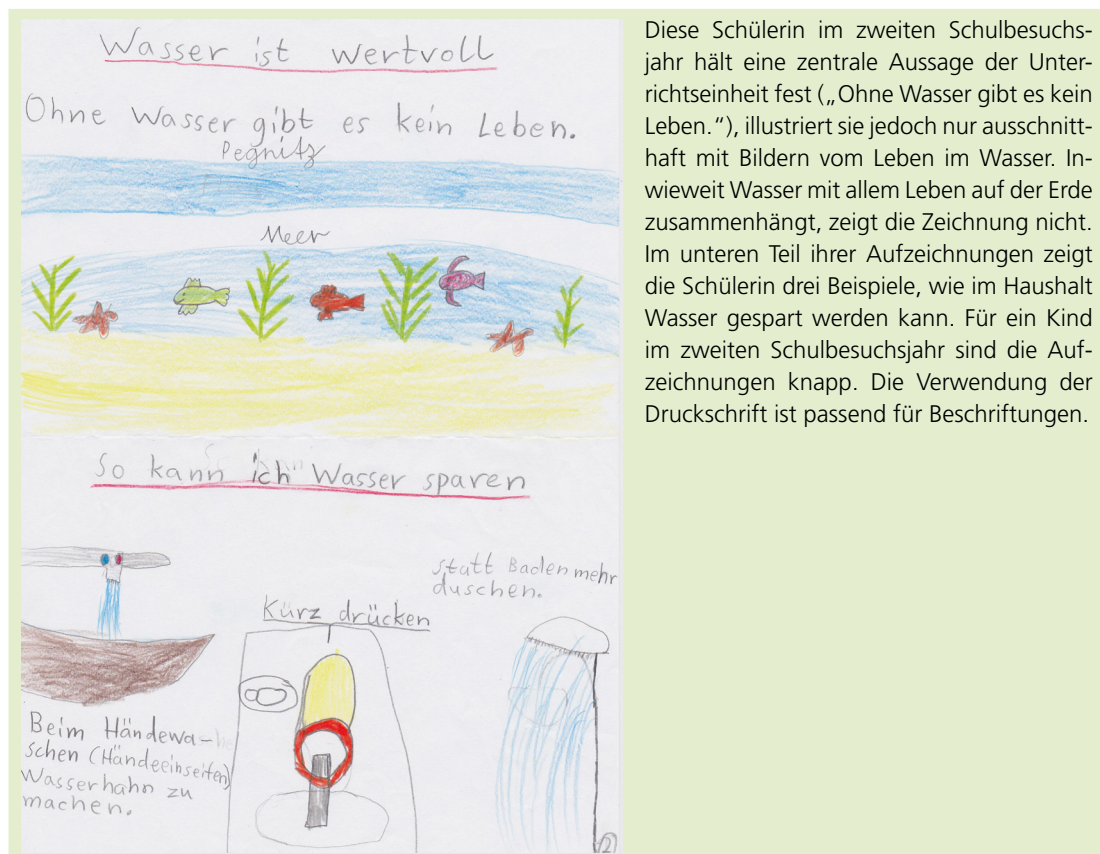 Wasser ist wertvoll
Ohne Wasser gibt es kein Leben.
Pegnitz
Meer
So kann ich Wasser sparen
statt Baden mehr
duschen.
Kurz drücken
Beim Händewa-
schen (Händeeinseifen)
Wasserhahn zu
machen.
2
Diese Schülerin im zweiten Schulbesuchs-
jahr hält eine zentrale Aussage der Unter-
richtseinheit fest („Ohne Wasser gibt es kein
Leben.“), illustriert sie jedoch nur ausschnitt-
haft mit Bildern vom Leben im Wasser. In-
wieweit Wasser mit allem Leben auf der Erde
zusammenhängt, zeigt die Zeichnung nicht.
Im unteren Teil ihrer Aufzeichnungen zeigt
die Schülerin drei Beispiele, wie im Haushalt
Wasser gespart werden kann. Für ein Kind
im zweiten Schulbesuchsjahr sind die Auf-
zeichnungen knapp. Die Verwendung der
Druckschrift ist passend für Beschriftungen.